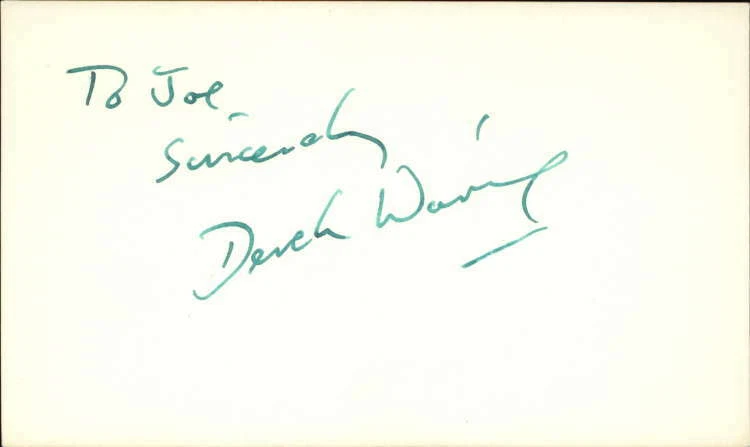 To Joe
Sincerely
Derek Waring